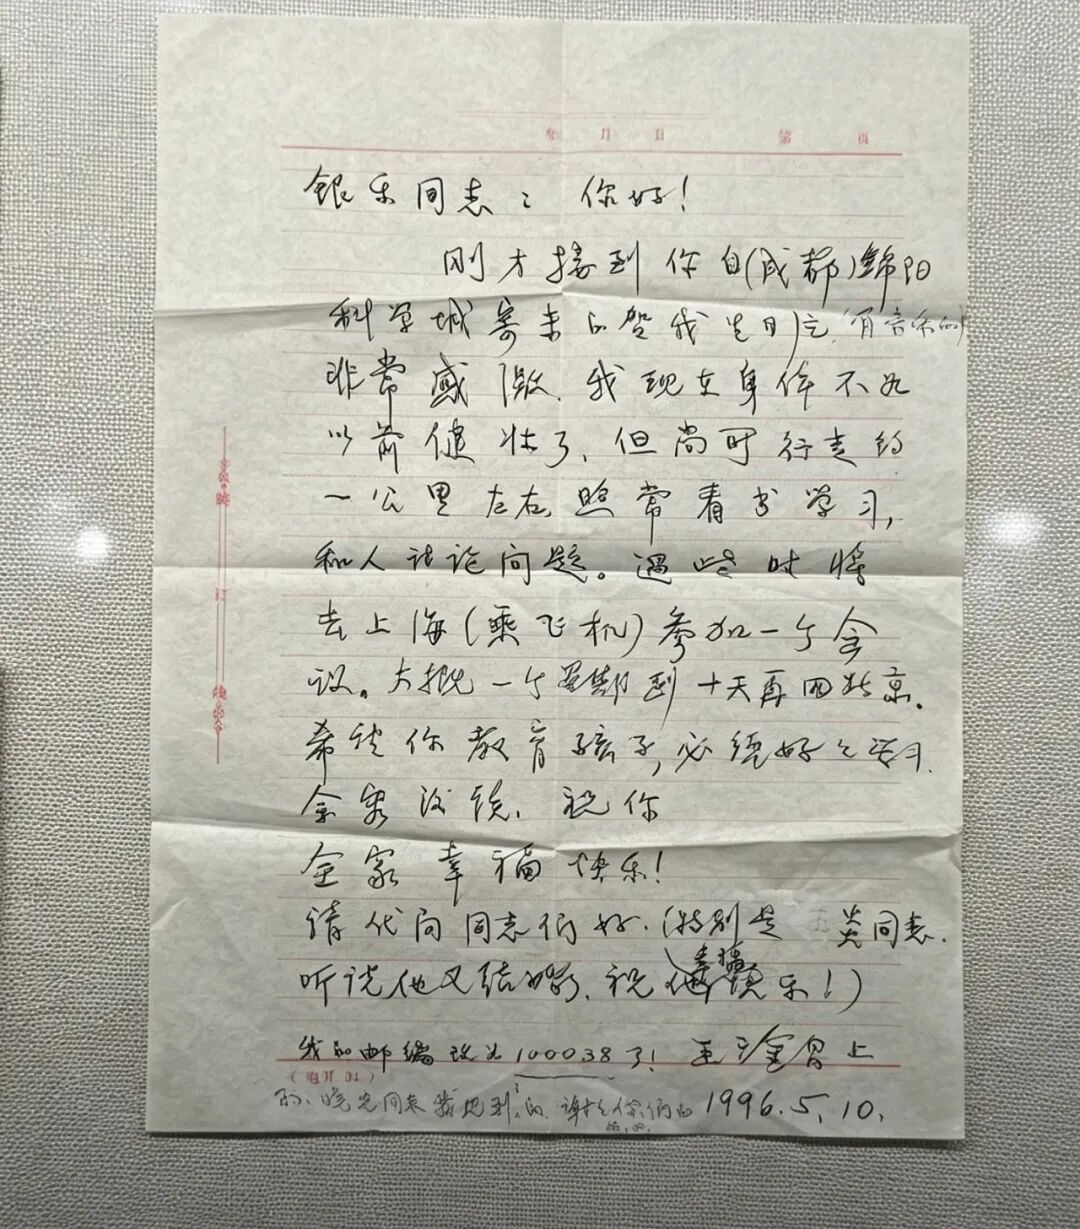 年 月 日 第 页
银乐同志: 你好!
刚才接到你自(成都)绵阳
科学城寄来的贺我生日片(有音乐的)
非常感激.我现在身体不如
以前健壮了,但尚可行走约
一公里左右,照常看书学习,
和人讨论问题。过些时将
去上海(乘飞机)参加一个会
议。大概一个星期到十天再回北京.
希望你教育孩子,必须好好学习.
祝你
全家幸福快乐!
请代问同志们好.(特别是 炎同志.
听说他又结婚了,祝他 快乐!)
我的邮编改为100038了! 王淦昌上
1996.5.10.